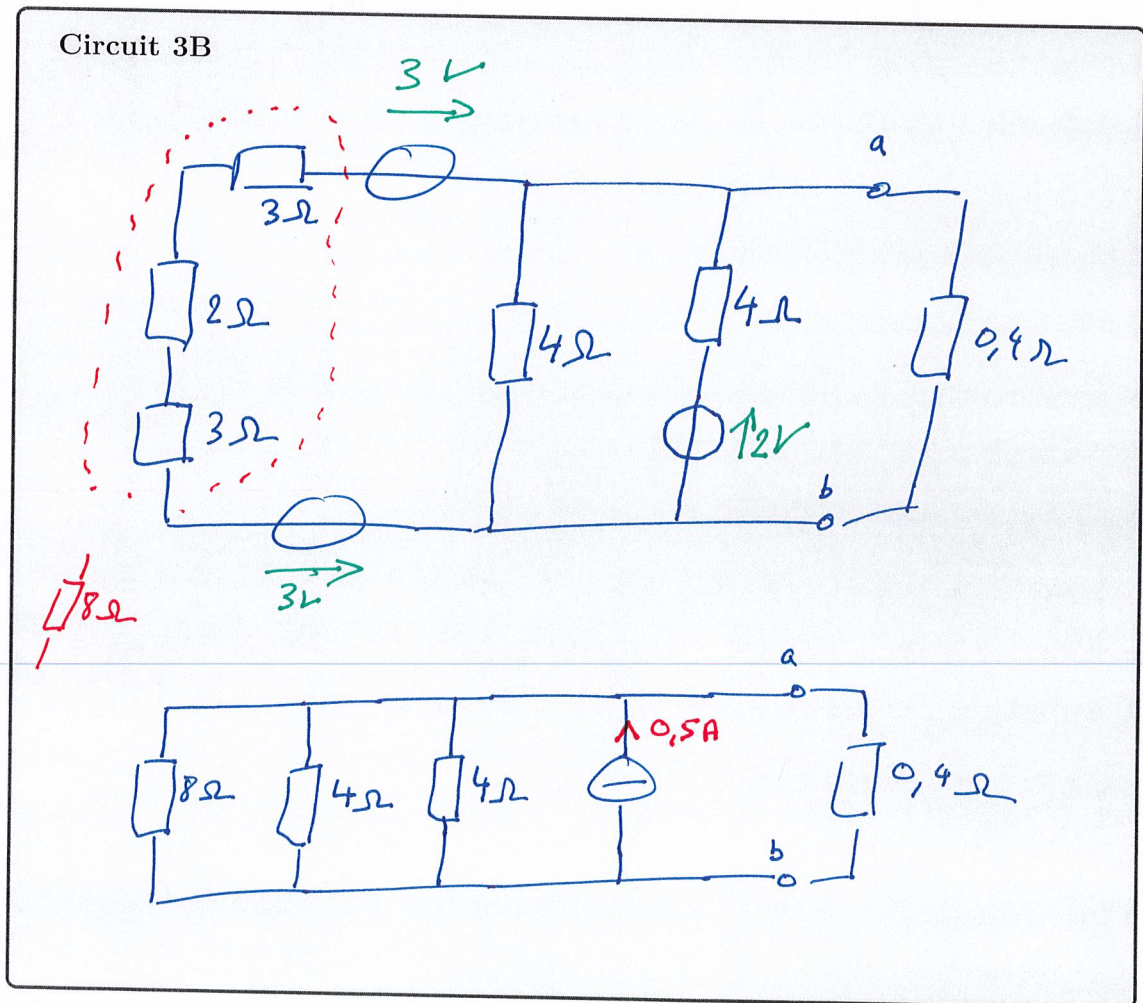 Circuit 3B
3 V
a
3Ω
2Ω
4Ω
4Ω
0,4Ω
3Ω
↑2V
b
3V
8Ω
a
0,5A
8Ω
4Ω
4Ω
0,4Ω
b